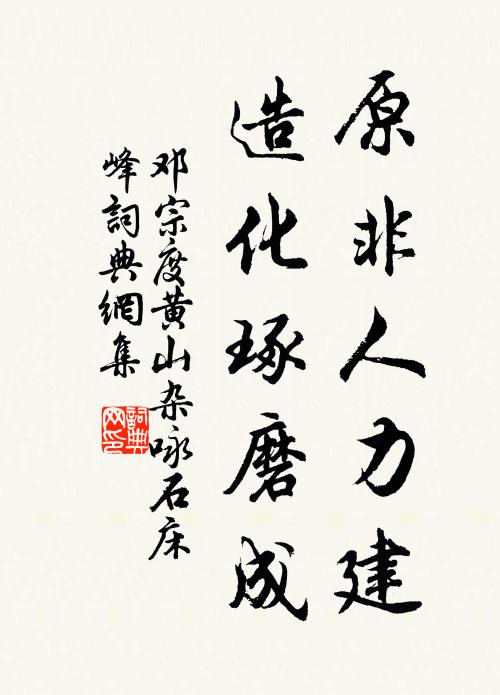 原非人力建
造化琢磨成
邓宗度黄山杂咏石床
峰詞典網集
詞典网印